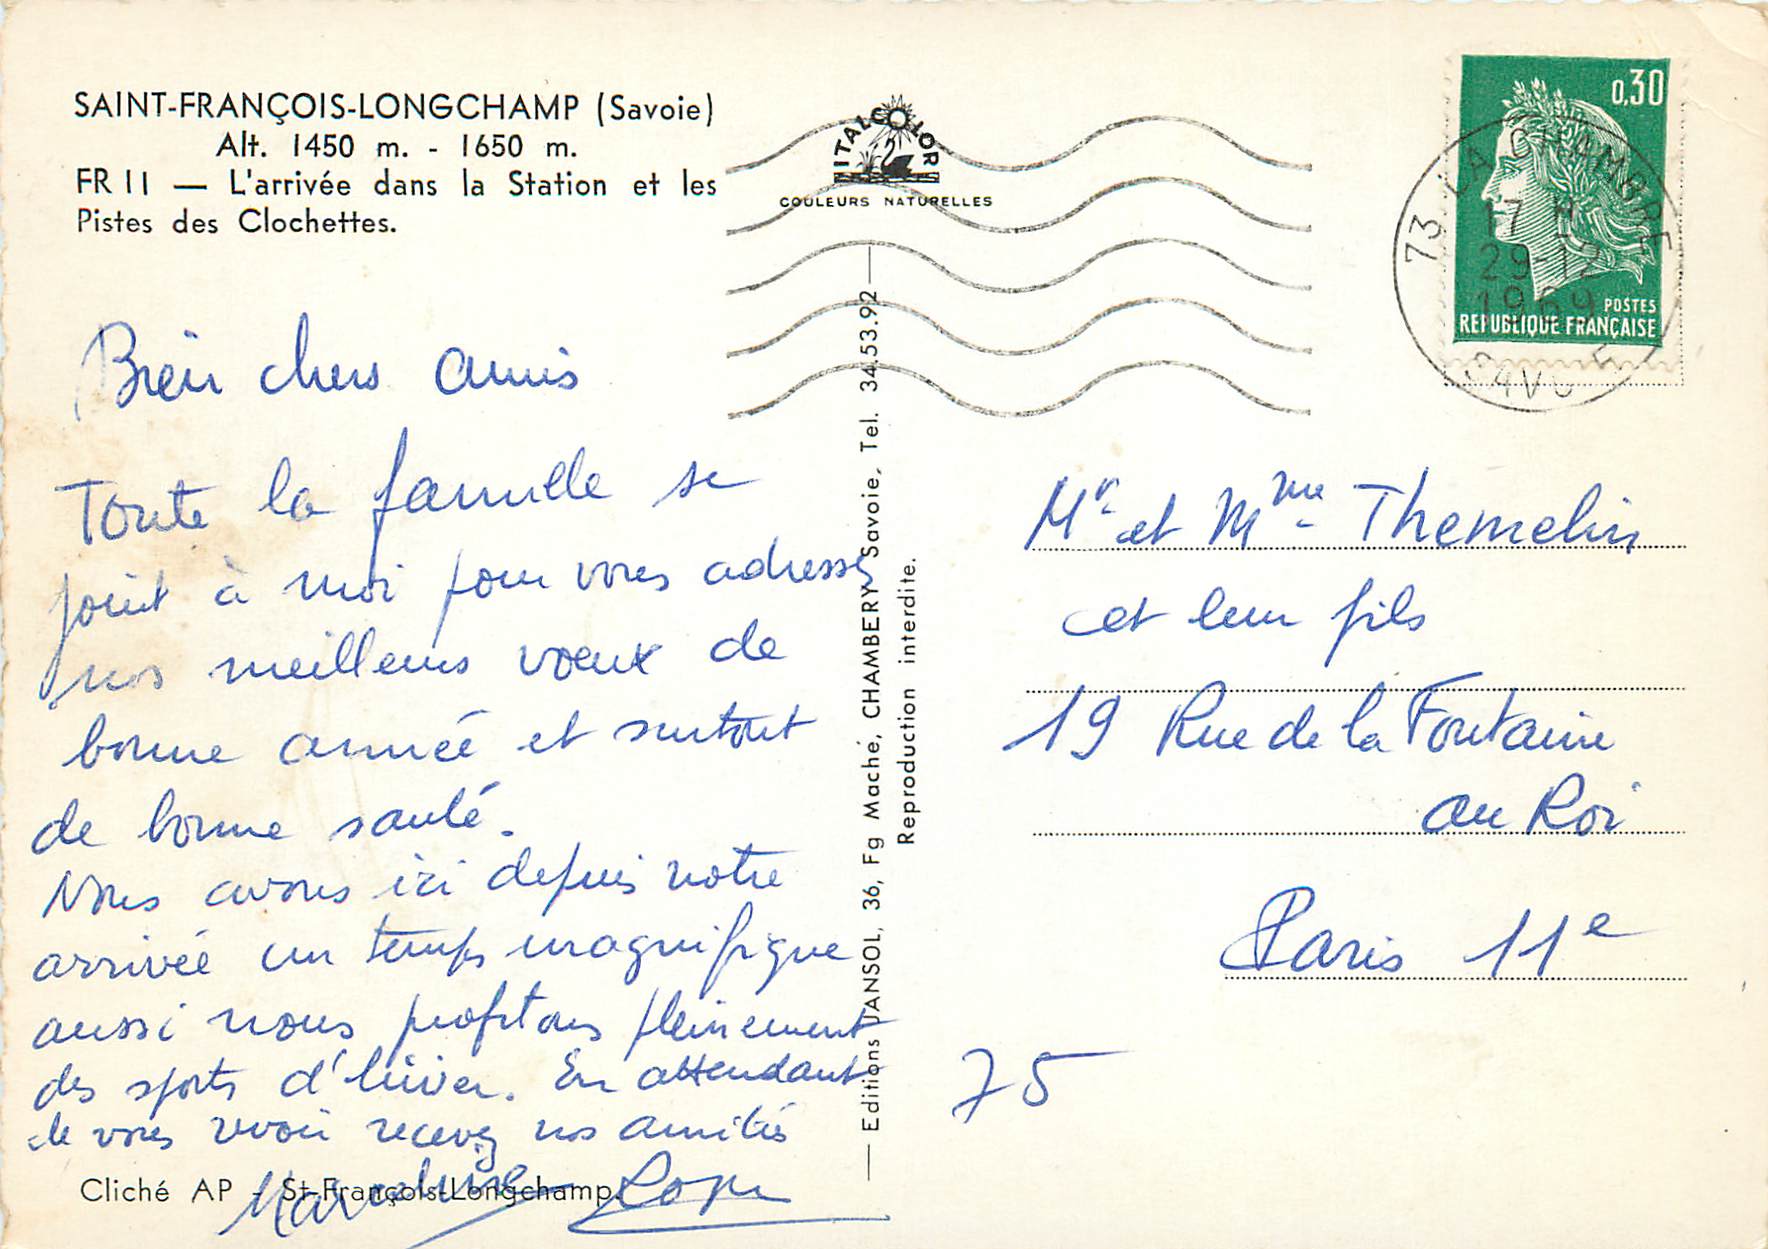 SAINT-FRANÇOIS-LONGCHAMP (Savoie)
Alt. 1450 m. - 1650 m.
FR 11 — L'arrivée dans la Station et les
Pistes des Clochettes.
ITALCOLOR
COULEURS NATURELLES
0,30
POSTES
REPUBLIQUE FRANÇAISE
73 LA CHAMBRE
17 H
29-12
1969
SAVOIE
Bien chers amis
Toute la famille se
joint à moi pour vous adresser
nos meilleurs voeux de
bonne année et surtout
de bonne santé.
Nous avons ici depuis notre
arrivée un temps magnifique
aussi nous profitons pleinement
des sports d'hiver. En attendant
de vous revoir recevez nos amitiés
Cliché AP - St-François-Longchamp.
— Editions JANSOL, 36, Fg Maché, CHAMBERY Savoie, Tel. 34.53.92 —
Reproduction interdite.
Mr et Mme Themelin
et leur fils
19 Rue de la Fontaine
au Roi
Paris 11e
75